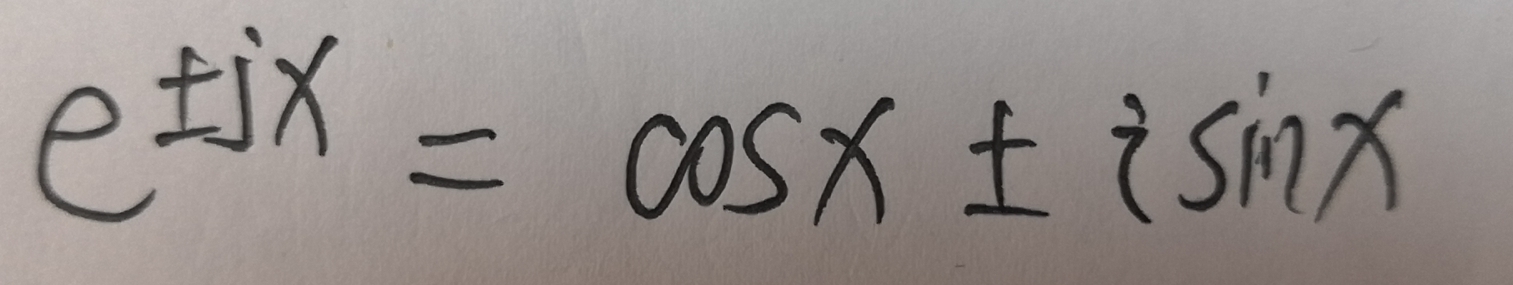 e^{±jx} = cosx ± i sinx